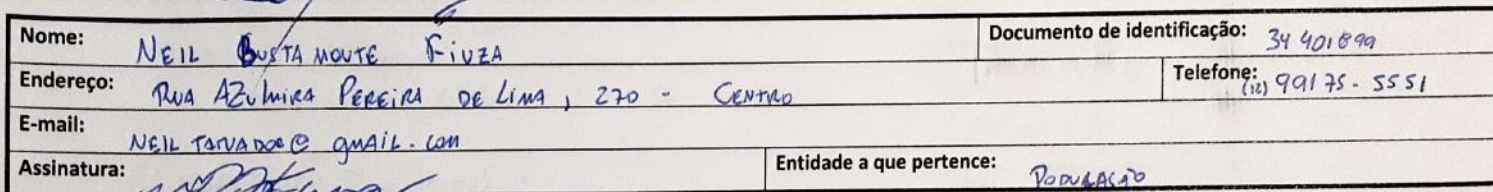 Nome: NEIL BUSTAMOUTE FIUZA Documento de identificação: 34 401899
Endereço: RUA AZULMIRA PEREIRA DE LIMA, 270 - CENTRO Telefone: (12) 99175-5551
E-mail: NEIL @ gmAIL.com
Assinatura: Entidade a que pertence: POPULAÇÃO